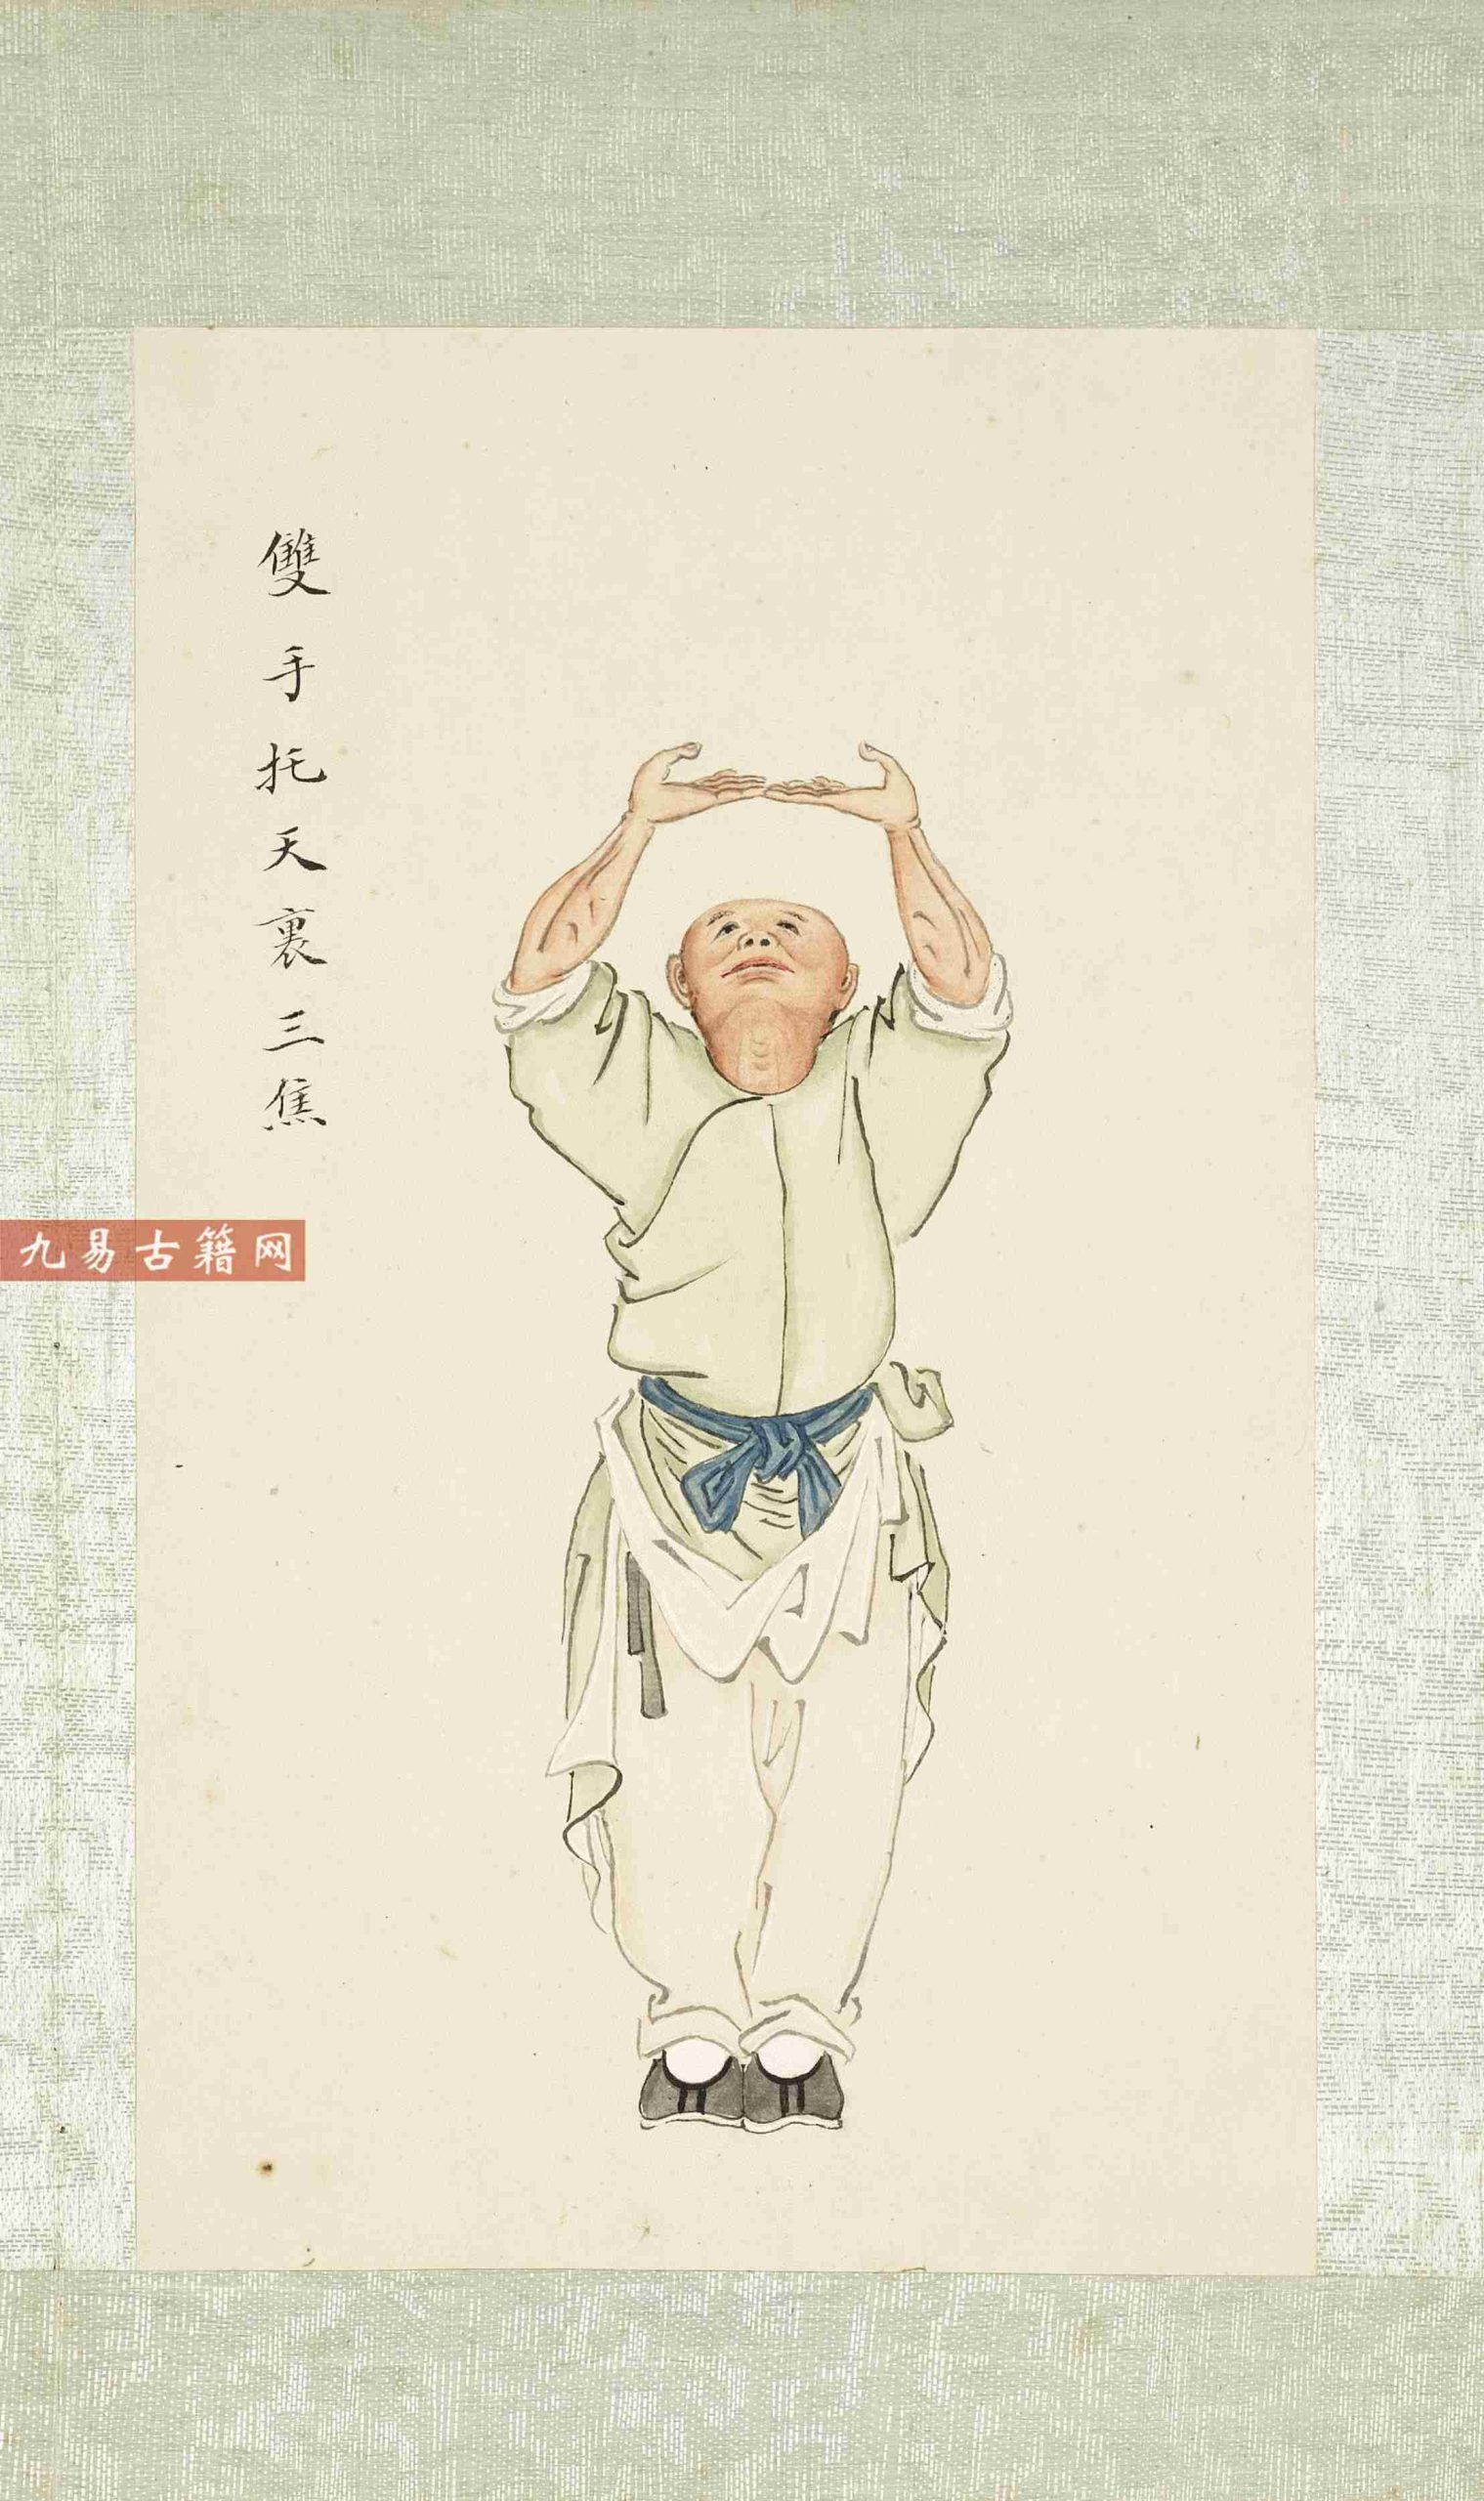 雙手托天裏三焦
九易古籍网